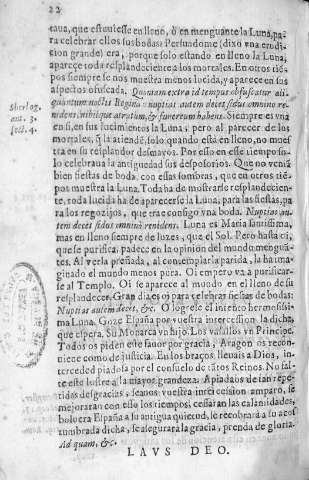 22
taua, que estuuiesse en lleno, ò en menguante la Luna, pa-
ra celebrar ellos sus bodas? Porfundome (dixo vna erudi-
cion grande) era, porque solo estando en lleno la Luna,
aparece toda resplandeciente a los mortales. En otros tiẽ-
pos siempre se nos muestra menos lucida, y aparece en sus
aspectos ofuscada. Quoniam extra id tempus obfuscatur ali-
quantum noctis Regina: nuptias autem decet sidus omnino re-
nidens, nihilque atratum, & funereum habens. Siempre es vna
en si, en sus lucimientos la Luna; pero al parecer de los
mortales, q̃ la atiendẽ, solo quando està en lleno, no mues-
tra en su resplandor desmayos. Por esso en esse tiempo so-
lo celebraua la antiguedad sus desposorios. Que no veniã
bien fiestas de boda, con essas sombras, que en otros tiẽ-
pos muestra la Luna. Toda ha de mostrarse resplandecien-
te, toda lucida ha de aparecerse la Luna, para las fiestas, pa-
ra los regozijos, que trae consigo vna boda. Nuptias au-
tem decet sidus omninò renidens. Luna es Maria santissima,
mas en lleno siempre de luzes, que el Sol. Pero hasta oi,
que se purifica, padece en la opinion del mundo mengua-
tes. Al verla preñada, al contemplarla parida, la ha ima-
ginado el mundo menos pura. Oi empero va a purificar-
se al Templo. Oi se aparece al mundo en el lleno de su
resplandecer. Gran dia es oi para celebrar fiestas de bodas:
Nuptias autem decet, &c. O logrese el intento hermosissi-
ma Luna. Goze España por vuestra intercession la dicha,
que espera. Su Monarca vn hijo. Los vasallos vn Principe.
Todos os piden este fauor por gracia, Aragon os recon-
uiene como de justicia. En los braços lleuais a Dios, in-
terceded piadosa por el consuelo de estos Reinos. No fal-
te este lustre a la mayor grandeza. Apiadaos de tan repe-
tidas desgracias, seanos vuestra intercession amparo, se
mejoraran con esso los tiempos, cessaran las calamidades,
boluera España a su antigua quietud, le recobrarà a su acos-
tumbrada dicha, se assegurarà la gracia, prenda de gloria.
Ad quam, &c.
LAVS DEO.
Sherlog.
ant. 3.
sect. 4.